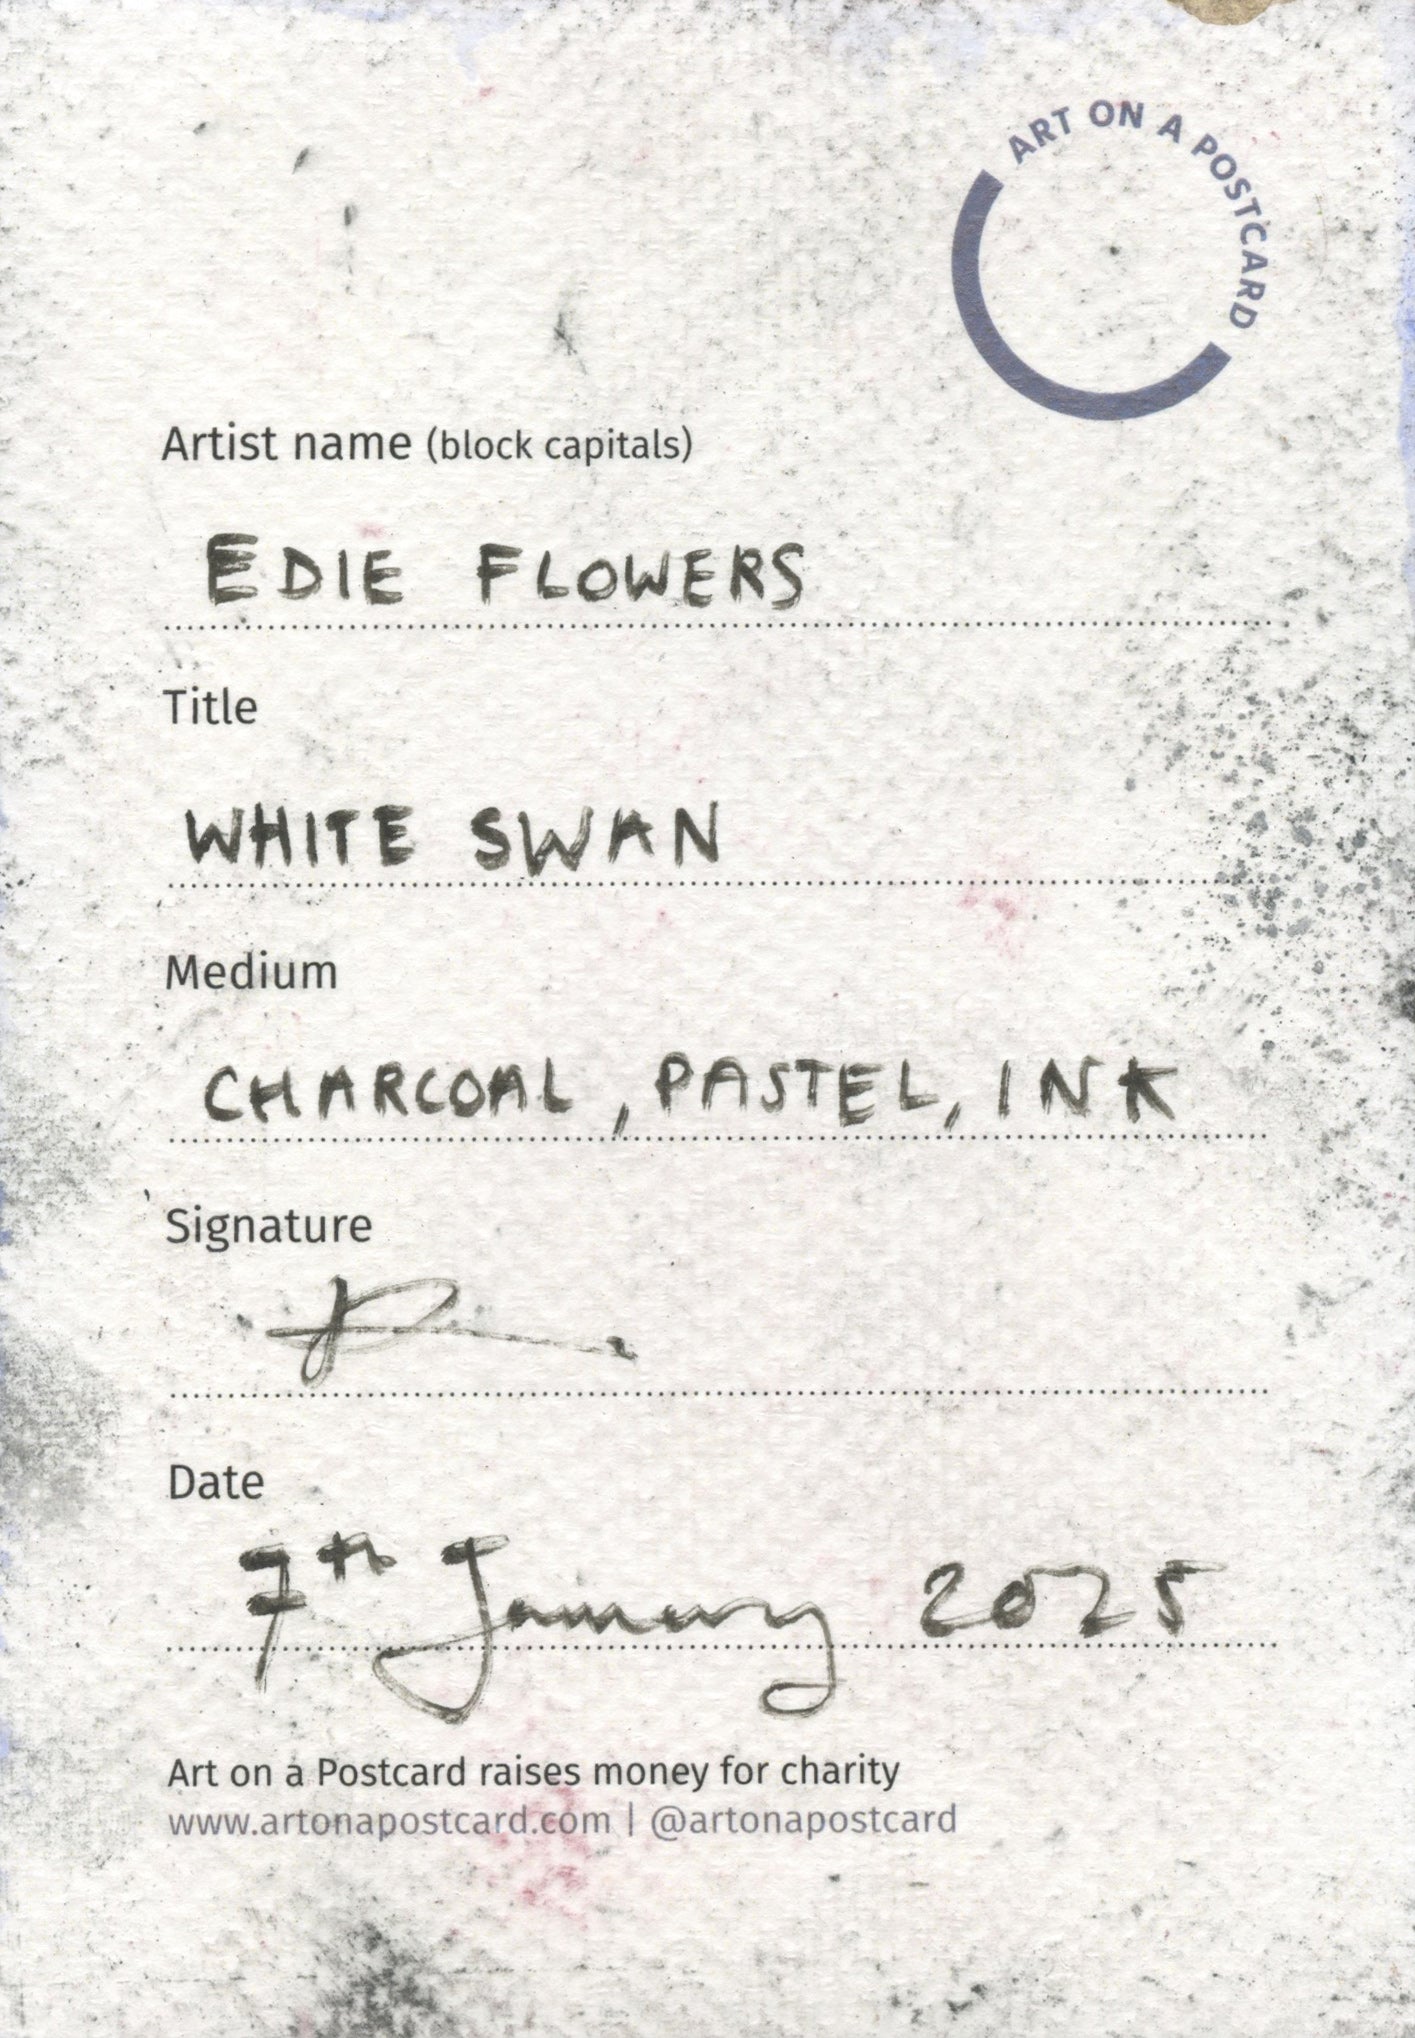 ART ON A POSTCARD
Artist name (block capitals)
EDIE FLOWERS
Title
WHITE SWAN
Medium
CHARCOAL, PASTEL, INK
Signature
Date
7th January 2025
Art on a Postcard raises money for charity
www.artonapostcard.com | @artonapostcard